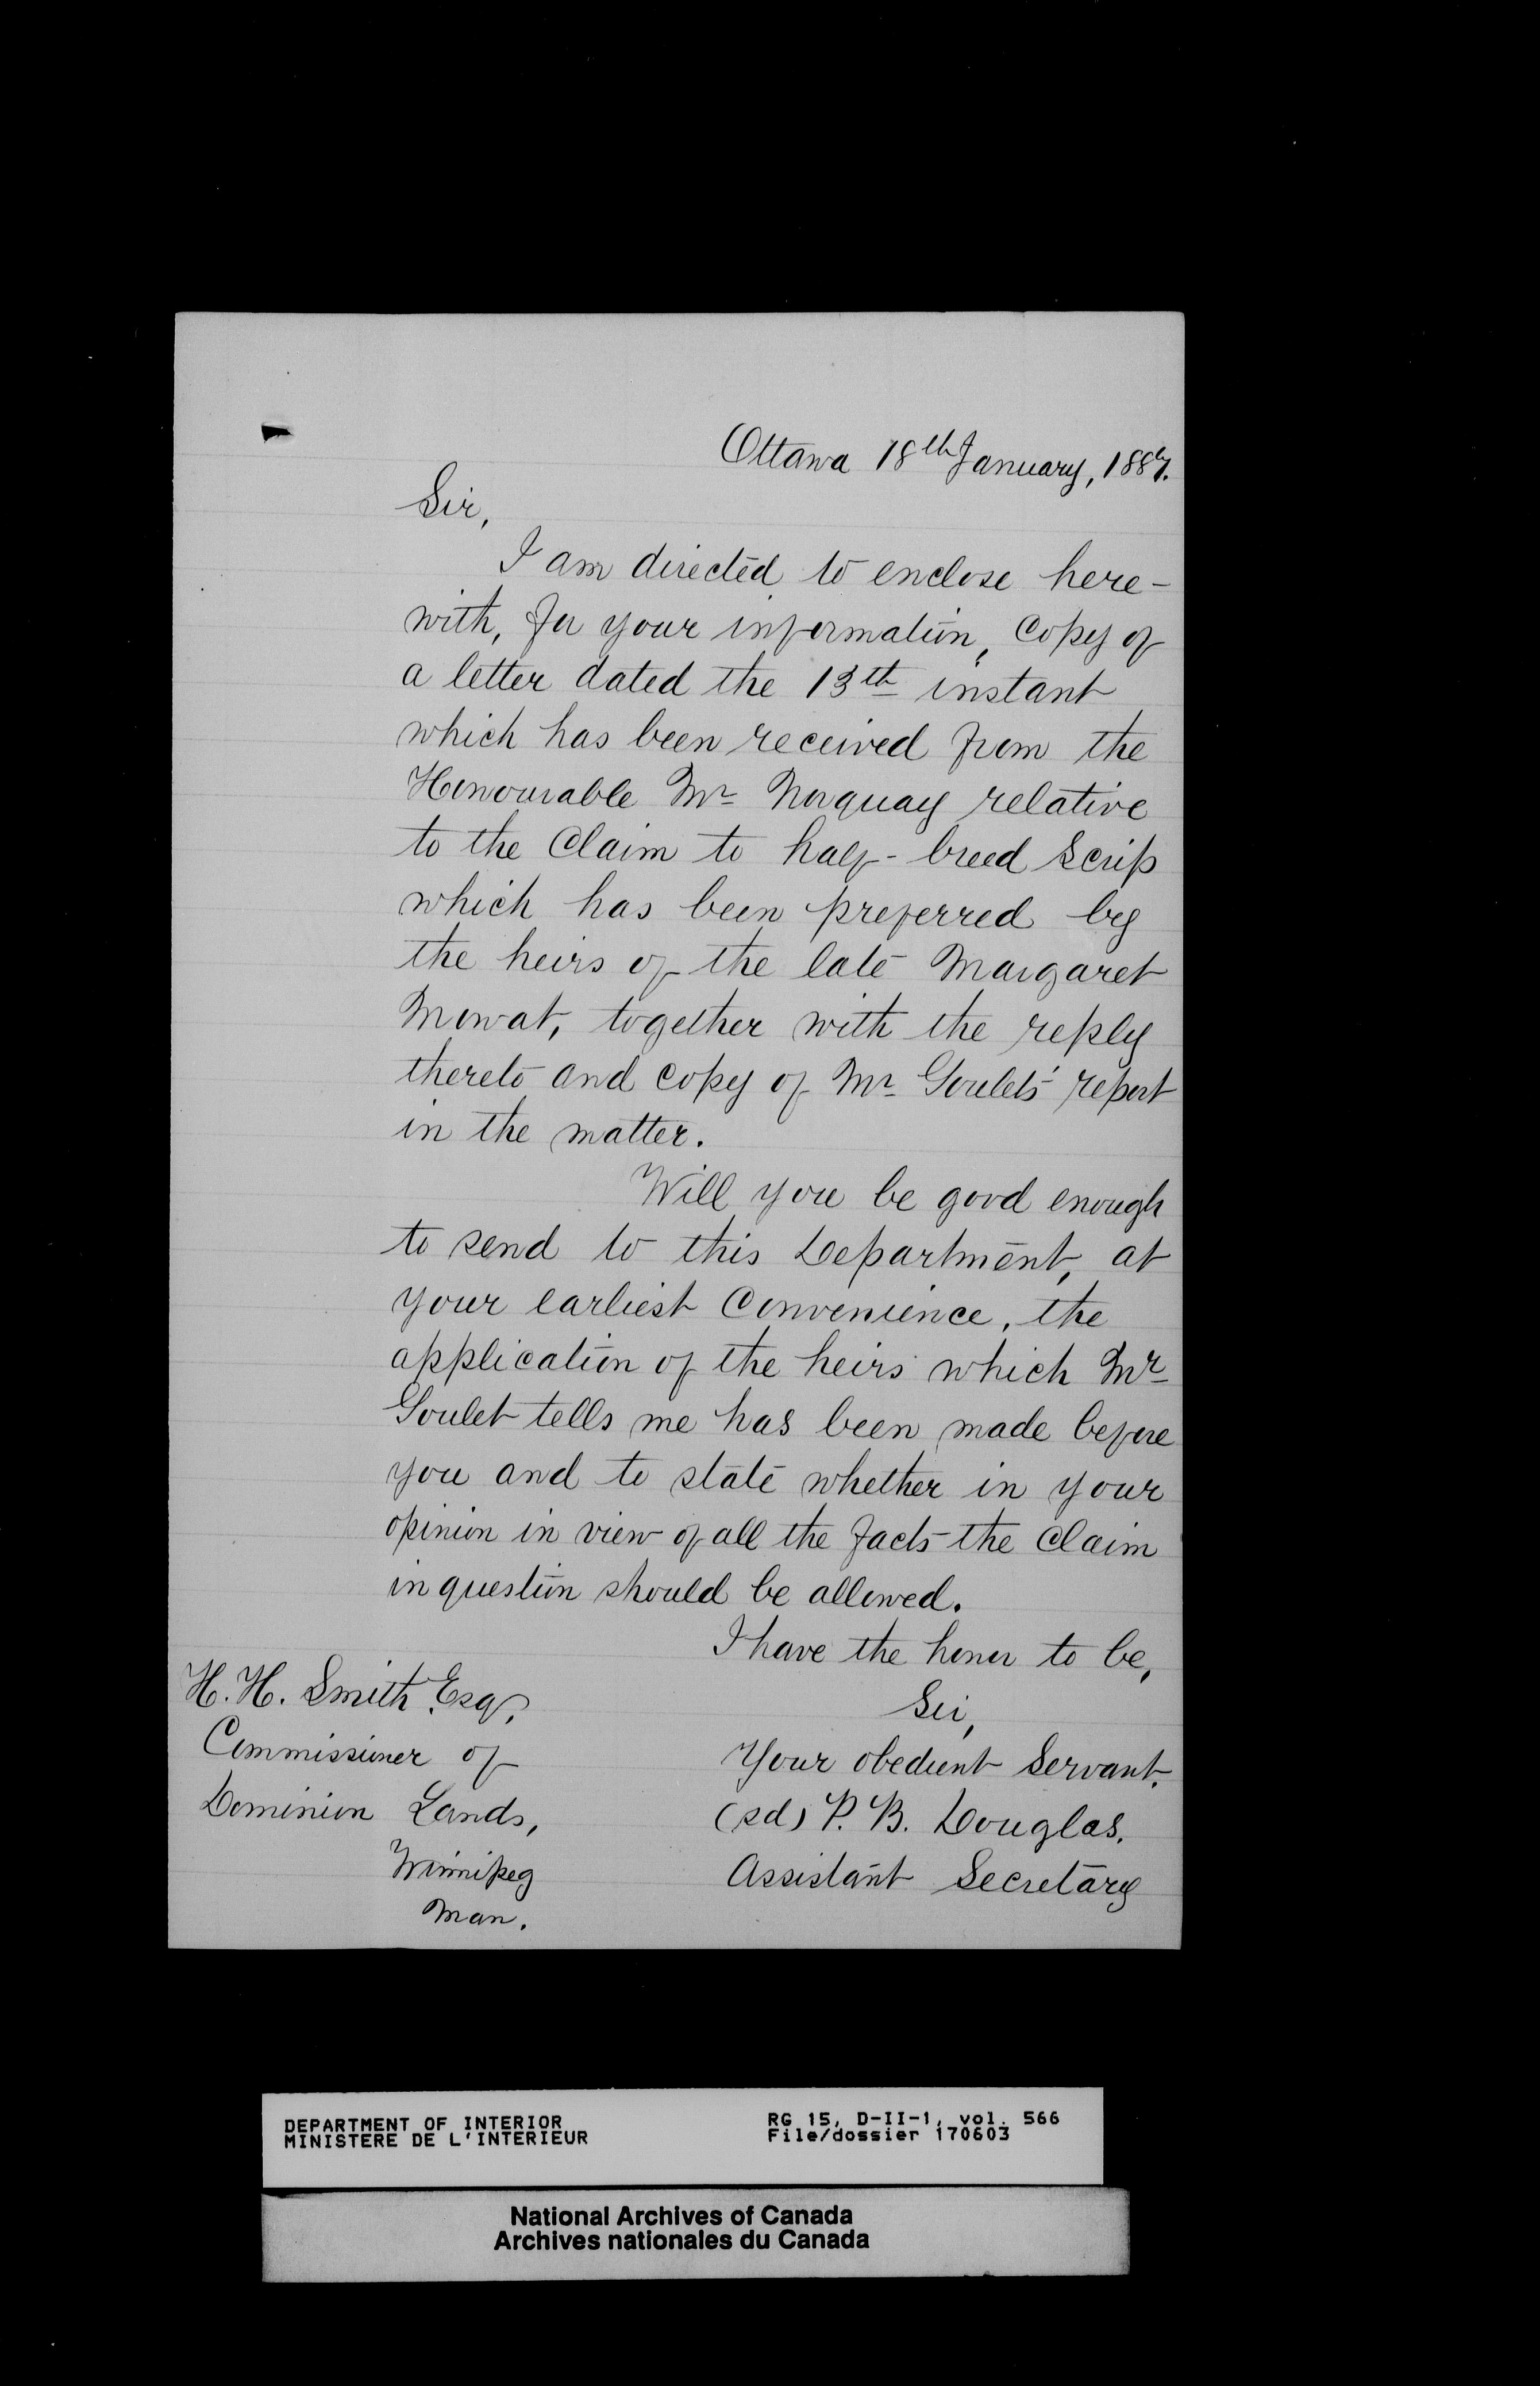 Ottawa 18th January, 1887.
Sir,
I am directed to enclose here-
with, for your information, Copy of
a letter dated the 13th instant
which has been received from the
Honourable Mr Norquay relative
to the Claim to half-breed Scrip
which has been preferred by
the heirs of the late Margaret
Mowat, together with the reply
thereto and copy of Mr Goulet's report
in the matter.
Will you be good enough
to send to this Department, at
your earliest Convenience, the
application of the heirs which Mr
Goulet tells me has been made before
you and to state whether in your
opinion in view of all the facts the Claim
in question should be allowed.
I have the honor to be,
Sir,
Your obedient Servant.
(sd) P. B. Douglas.
Assistant Secretary
H. H. Smith Esq,
Commissioner of
Dominion Lands,
Winnipeg
Man.
DEPARTMENT OF INTERIOR
MINISTERE DE L'INTERIEUR
RG 15, D-II-1, vol. 566
File/dossier 170603
National Archives of Canada
Archives nationales du Canada